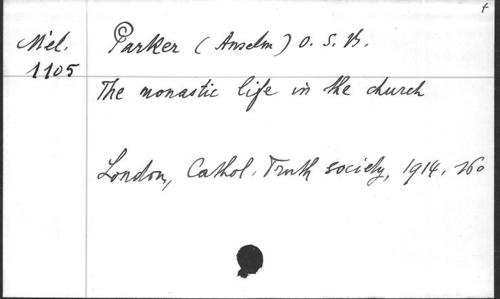 Mél.
1105
Parker (Anselm) O. S. B.
The monastic life in the church
London, Cathol. Truth society, 1914, 16o